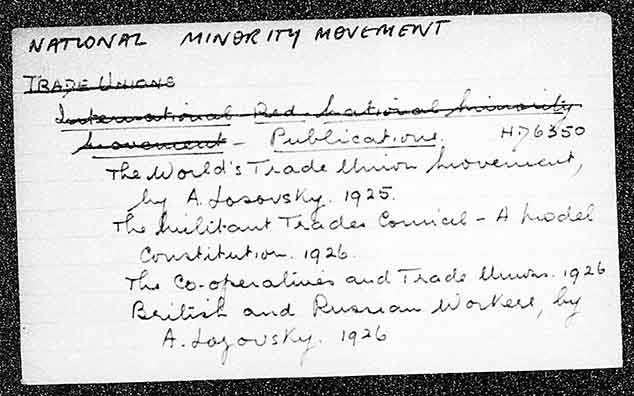 NATIONAL MINORITY MOVEMENT
TRADE UNIONS
International Red National Minority
Movement - Publications. H76350
The World's Trade Union Movement,
by A. Losovsky. 1925.
The Militant Trades Council - A Model
Constitution. 1926.
The Co-operatives and Trade Unions. 1926
British and Russian Workers, by
A. Lozovsky. 1926